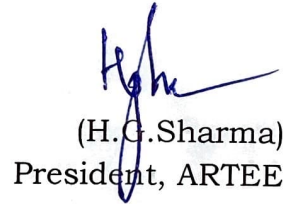 (H.G.Sharma)
President, ARTEE